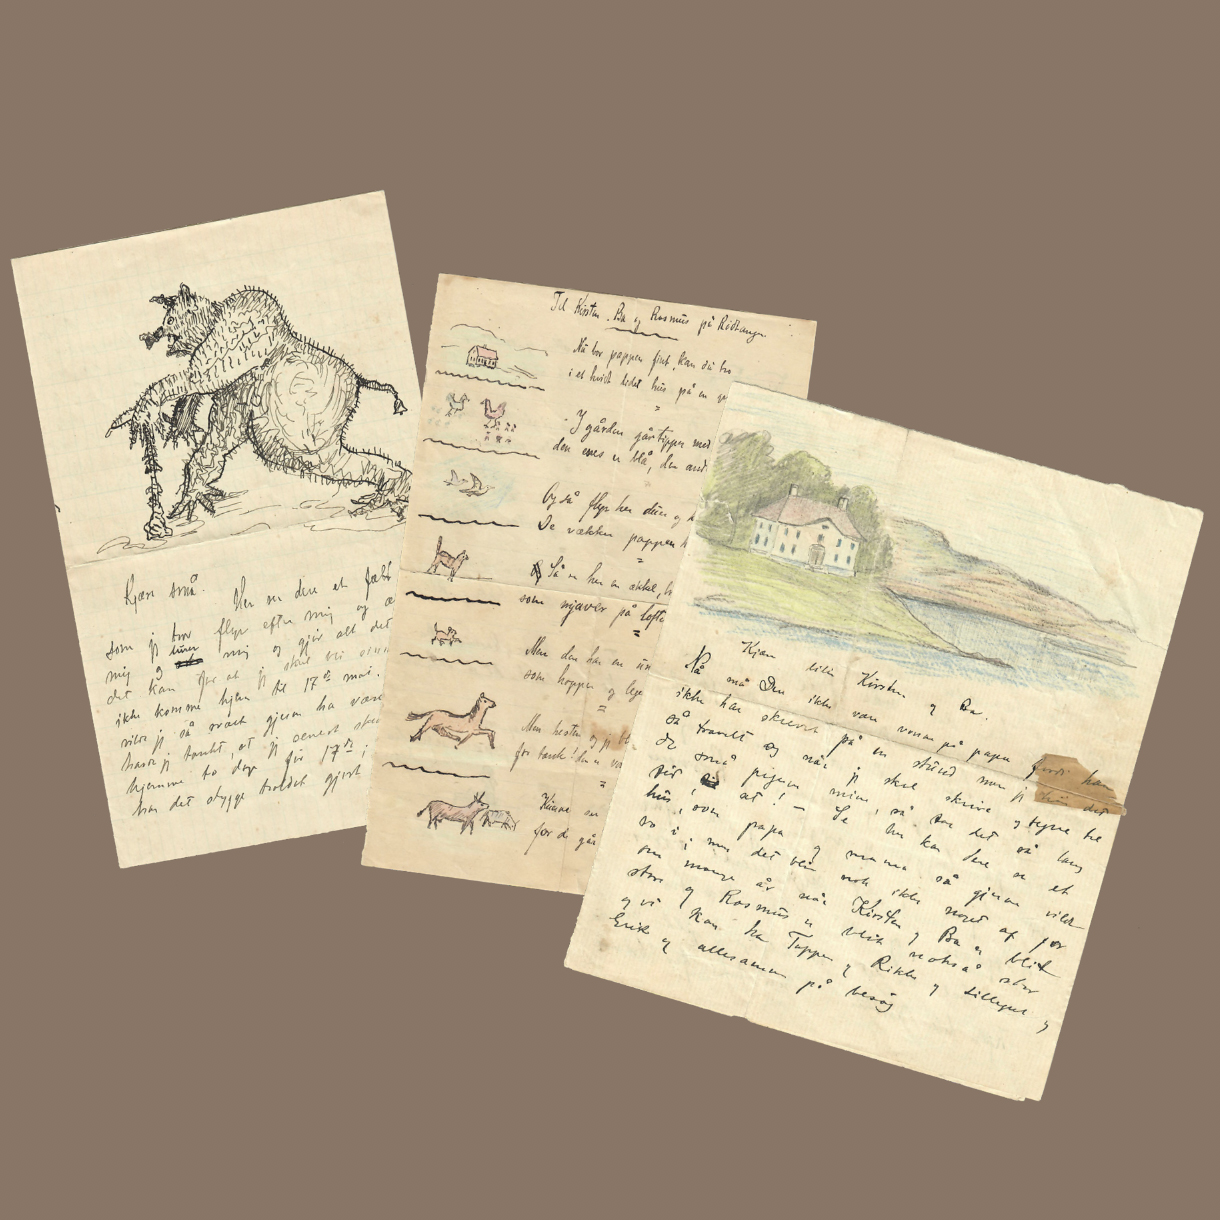 Kjære små. Her ser dere et fælt
som jeg tror flyr efter mig og
mig og lurer mig og gjør alt det
det kan for at jeg skal bli
ikke komme hjem til 17de mai.
vilde jeg så svært gjerne ha været
hadde jeg tænkt, at jeg senest skulde
hjemme to dage før 17de
har det stygge troldet gjort
Til Kirsten, Ba og Rasmus på Rødtangen
Nå bor pappen fint, kan du tro
i et hvidt lidet hus på en
I gården går tipper med
den enes er blå, den
Og så flyr her duer og
De vækker pappen
Så er her en ækkel,
som mjaver på loftet
Men den har en
som hopper og leger
Men hesten og
for tænk! hun
Kunne
for de går
Kjære lille Kirsten og Ba.
Nå må Du ikke være vonne på papen fordi han
ikke har skrevet på en stund men
så travelt og når jeg skal skrive og tegne til
de små pigene mine, så tar det så lang
tid at! - Se her kan dere se et
hus, som papa og mamma så gjerne vilde
bo i, men det blir nok ikke noget af før
om mange år når Kirsten og Ba er blit
store og Rasmus er blit også stor
og vi kan ha Tuppen og Rikke og Lillegut og
Erik og allesammen på besøg